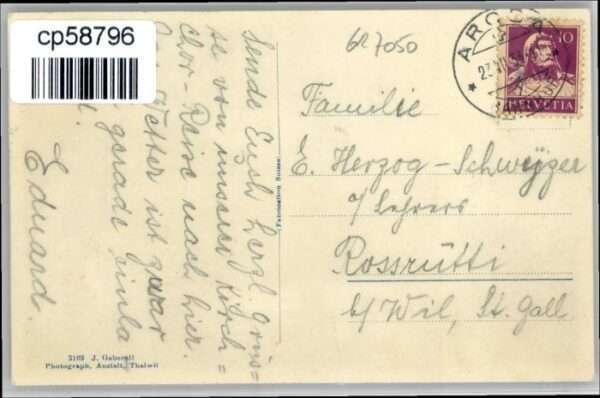 cp58796
Sende Euch herzl. Grüs=
se von unserer Kirch=
chor-Reise nach hier.
Wetter ist zwar
gerade einla
Eduard.
3109 J. Gaberell
Photograph, Anstalt, Thalwil
Fabrication Suisse
7050
AROSA
10
HELVETIA
Familie
E. Herzog-Schweizer
a/Lehrers
Rossrütti
b/Wil, St. Gall